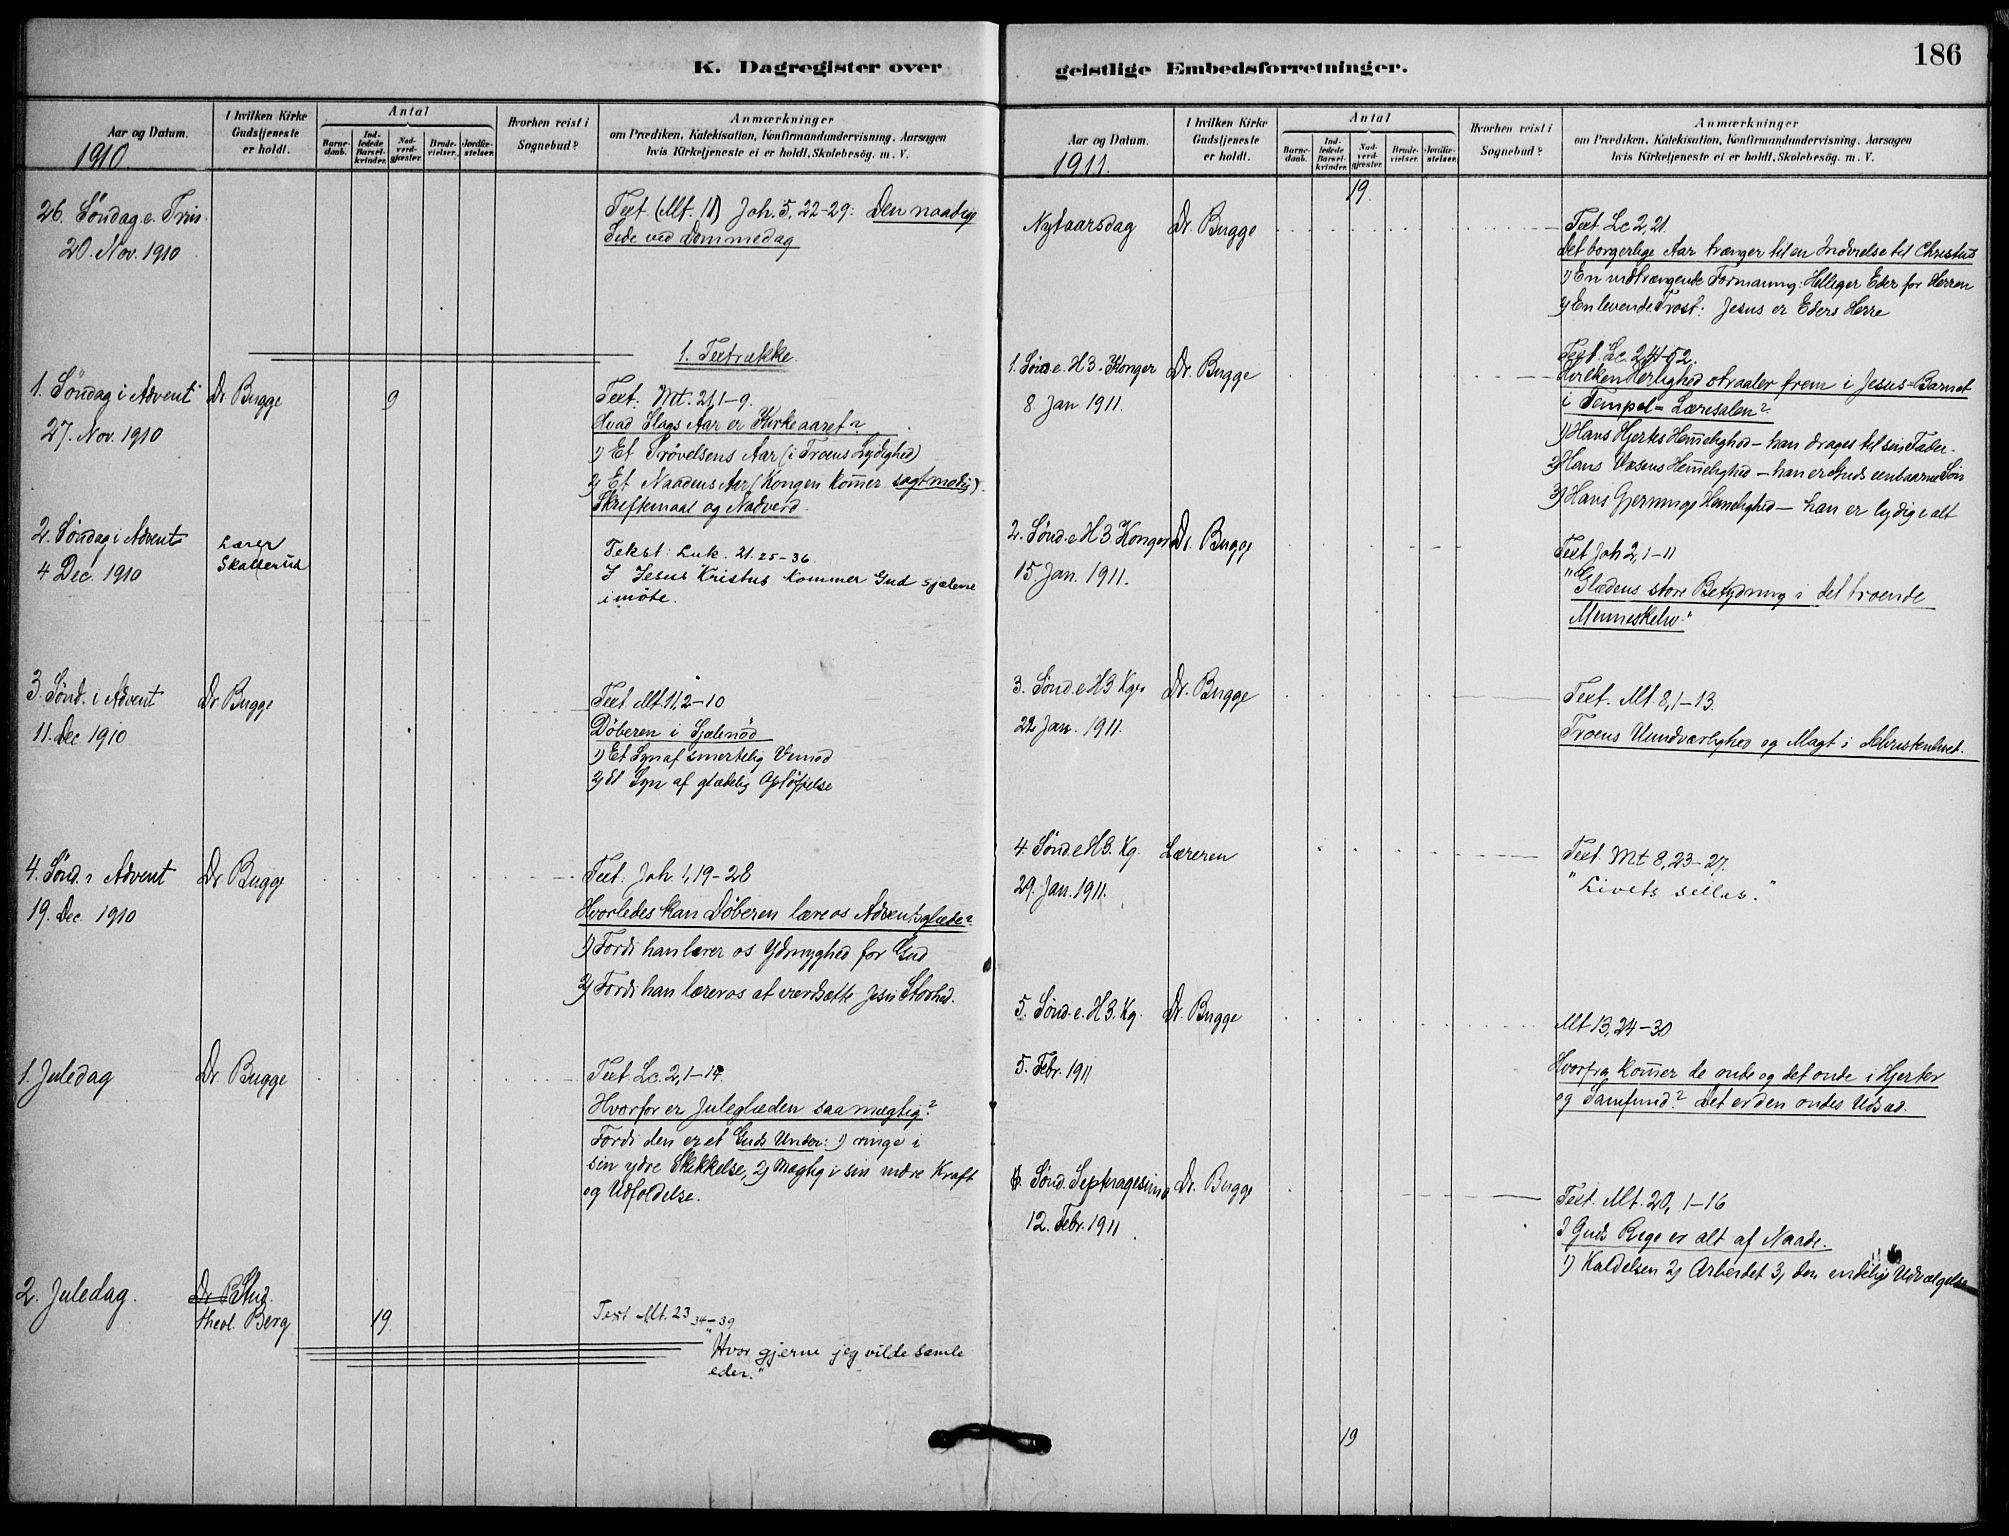 K. Dagregister over
Aar og Datum.
I hvilken Kirke
Gudstjeneste
er holdt.
Antal
Barne-
daab.
Ind-
ledede
Barsel-
kvinder.
Nad-
verd-
gjæster.
Brude-
vielser.
Jordfæ-
stelser.
Hvorhen reist i
Sognebud?
Anmærkninger
om Prædiken, Katekisation, Konfirmandundervisning, Aarsagen
hvis Kirketjeneste ei er holdt, Skolebesög, m. V.
1910.
26. Søndag e. Trin.
20. Nov. 1910
Text (Mt. 11) Joh. 5, 22-29: Den naadige
Side ved Dommedag
1. Textrække.
1. Søndag i Advent
27. Nov. 1910
Dr Bugge
9
Text. Mt. 21, 1-9.
Hvad Slags Aar er Kirkeaaret?
1) Et Prøvelsens Aar (i Troens Lydighed)
2) Et Naadens Aar (Kongen kom̄er sagtmodig).
Skriftemaal og Nadverd.
2. Søndag i Advent
4 Dec. 1910
Lærer
Skatterud
Tekst: Luk. 21. 25-36.
I Jesus Kristus kommer Gud sjælene
imöte.
3. Sønd. i Advent
11. Dec 1910
Dr Bugge
Text Mt. 11, 2-10
Døberen i Sjælenød
1) Et Syn af smertelig Vemod
2) Et Syn af glædelig
4. Sønd. i Advent
19. Dec. 1910
Dr. Bugge
Text. Joh. 1, 19-28
Hvorledes kan Døberen lære os Adventsglæde?
1) Fordi han lærer os Ydmyghed for Gud
2) Fordi han lærer os at værdsætte Jesu Storhed.
1. Juledag
Dr. Bugge
Text. Lc. 2, 1-14
Hvorfor er Juleglæden saa mægtig?
Fordi den er et Guds Under: 1) ringe i
sin ydre Skikkelse, 2) Mægtig i sin indre Kraft
og Udfoldelse.
2. Juledag.
Dr B Stud.
theol. Berg
19
Text Mt. 23 34-39
"Hvor gjerne jeg vilde samle
eder."
geistlige Embedsforretninger.
186
Aar og Datum.
I hvilken Kirke
Gudstjeneste
er holdt.
Antal
Barne-
daab.
Ind-
ledede
Barsel-
kvinder.
Nad-
verd-
gjæster.
Brude-
vielser.
Jordfæ-
stelser.
Hvorhen reist i
Sognebud?
Anmærkninger
om Prædiken, Katekisation, Konfirmandundervisning, Aarsagen
hvis Kirketjeneste ei er holdt, Skolebesög, m. V.
1911.
19.
Nytaarsdag
Dr. Bugge
Text Lc 2, 21.
Det borgerlige Aar trænger til en Indvielse til Christus
1) En indtrængende Formaning: Helliger Eder for Herren
2) En levende Trost: Jesus er Eders Herre
1. Sønd e. H 3 Konger
8. Jan 1911.
Dr. Bugge
Text. Lc. 2, 41-52.
Hvilken Herlighed straaler frem i Jesus-Barnet
i Tempel-Læresalen?
1) Hans Hjertes Hem̄elighed - han drages til sin Fader.
2) Hans Væsens Hem̄elighed - han er Guds enbaarne Søn
3) Hans Gjernings Hemelighed - han er lydig i alt
2. Sønd. e H 3 Konger
15. Jan. 1911.
Dr. Bugge
Text Joh 2, 1-11
"Glædens store Betydning i det troende
Menneskeliv."
3. Sønd e H 3 Kger
22 Jan. 1911.
Dr. Bugge
Text. Mt. 8, 1-13.
Troens Uundværlighed og Magt i Christenlivet.
4. Sønd. e H 3. Kg.
29. Jan. 1911.
Læreren
Text. Mt 8, 23-27.
"Livets seilas."
5. Sønd. e. H 3. Kg.
5. Febr. 1911
Dr. Bugge
Mt 13, 24-30
Hvorfra kom̄er de onde og det onde i Hjerter
og Samfund? Det er den ondes Udsæd.
Sønd. Septuagesima
12. Febr. 1911.
Dr. Bugge
Text. Mt. 20, 1-16
I Guds Rige er alt af Naade.
1) Kaldelsen 2) Arbeidet 3, den endelige Udvælgelse
19